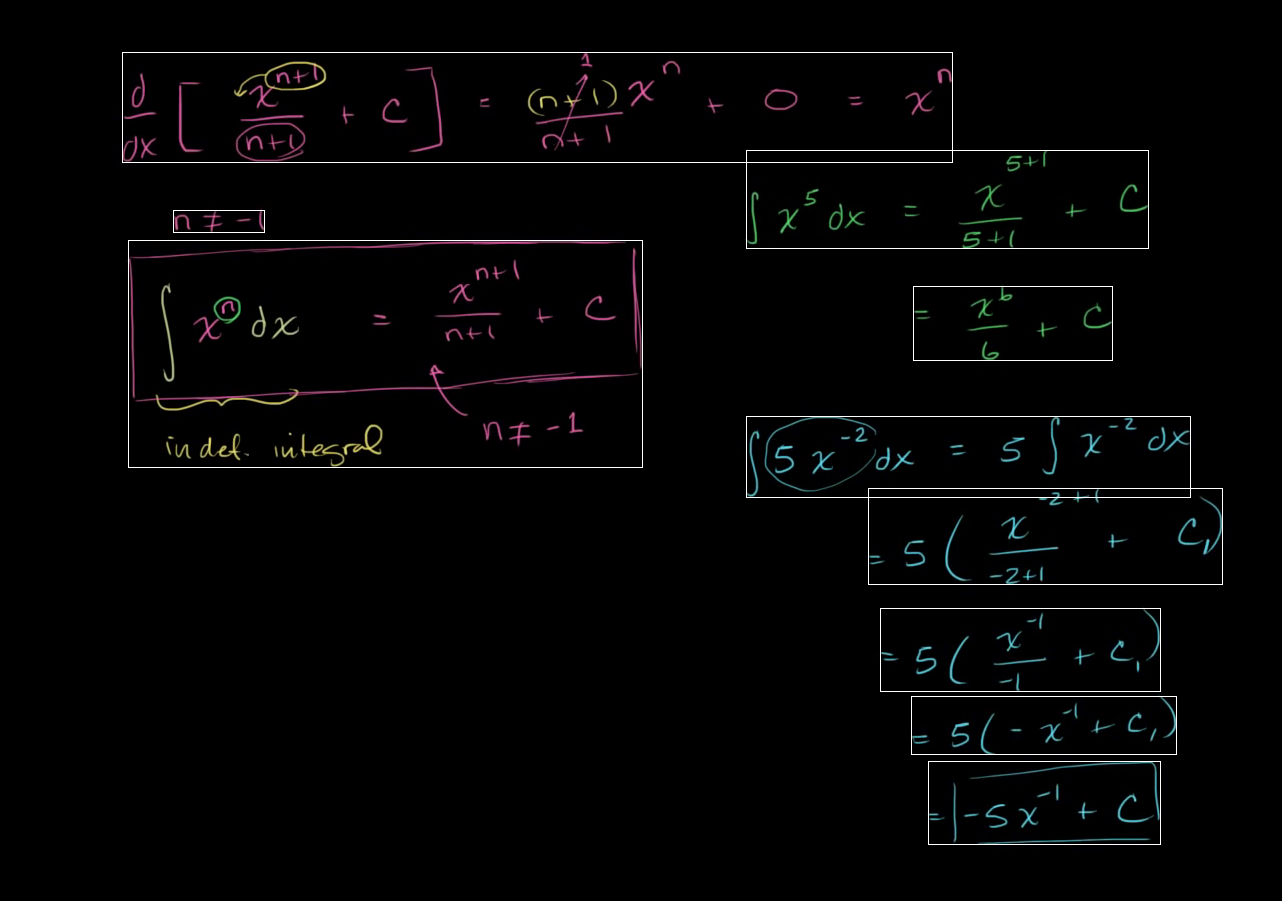 d/dx [ x^(n+1)/(n+1) + C ] = (n+1)/(n+1) x^n + 0 = x^n
1
n ≠ -1
∫ x^n dx = x^(n+1)/(n+1) + C
n ≠ -1
indef. integral
∫ x^5 dx = x^(5+1)/(5+1) + C
= x^6/6 + C
∫ 5x^(-2) dx = 5 ∫ x^(-2) dx
= 5 ( x^(-2+1)/(-2+1) + C₁ )
= 5 ( x^(-1)/(-1) + C₁ )
= 5 ( -x^(-1) + C₁ )
= -5x^(-1) + C